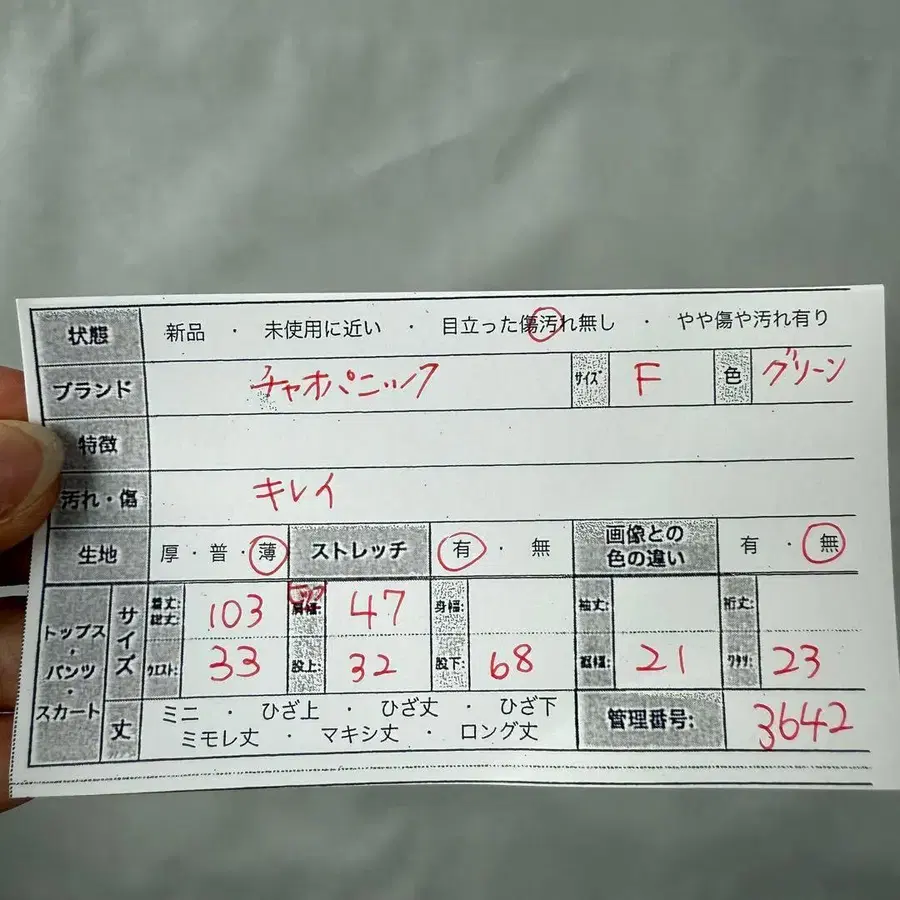 状態 新品 ・ 未使用に近い ・ 目立った傷汚れ無し ・ やや傷や汚れ有り
ブランド チャオパニック サイズ F 色 グリーン
特徴
汚れ・傷 キレイ
生地 厚・普・薄 ストレッチ 有・無 画像との色の違い 有・無
トップス・パンツ・スカート サイズ 着丈:総丈: 103 47 身幅: 袖丈: 裄丈:
ウエスト: 33 股上: 32 股下: 68 裾幅: 21 ワタリ: 23
丈 ミニ ・ ひざ上 ・ ひざ丈 ・ ひざ下
ミモレ丈 ・ マキシ丈 ・ ロング丈 管理番号: 3642